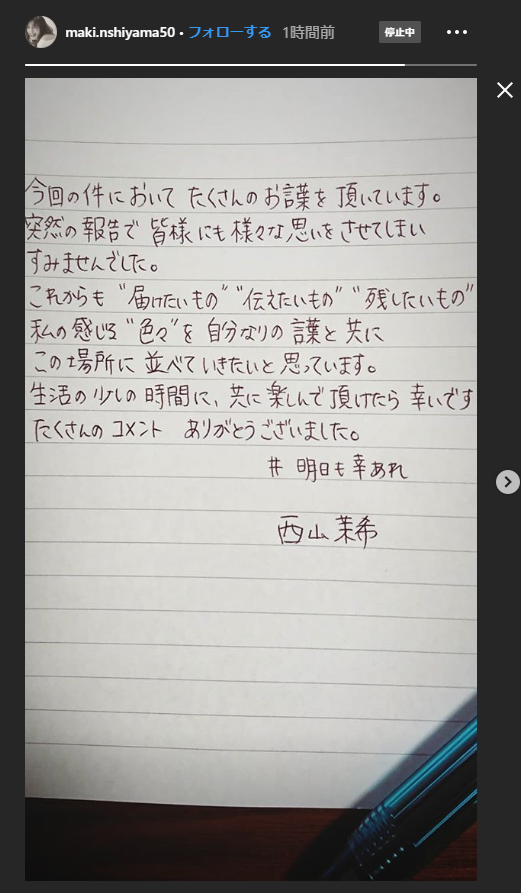 maki.nshiyama50 • フォローする 1時間前 停止中
今回の件において たくさんのお言葉を 頂いています。
突然の報告で 皆様にも様々な思いをさせてしまい
すみませんでした。
これからも "届けたいもの" "伝えたいもの" "残したいもの"
私の感じる "色々" を 自分なりの 言葉と共に
この場所に 並べていきたいと思っています。
生活の少しの時間に、共に楽しんで頂けたら 幸いです
たくさんのコメント ありがとうございました。
# 明日も幸あれ
西山茉希